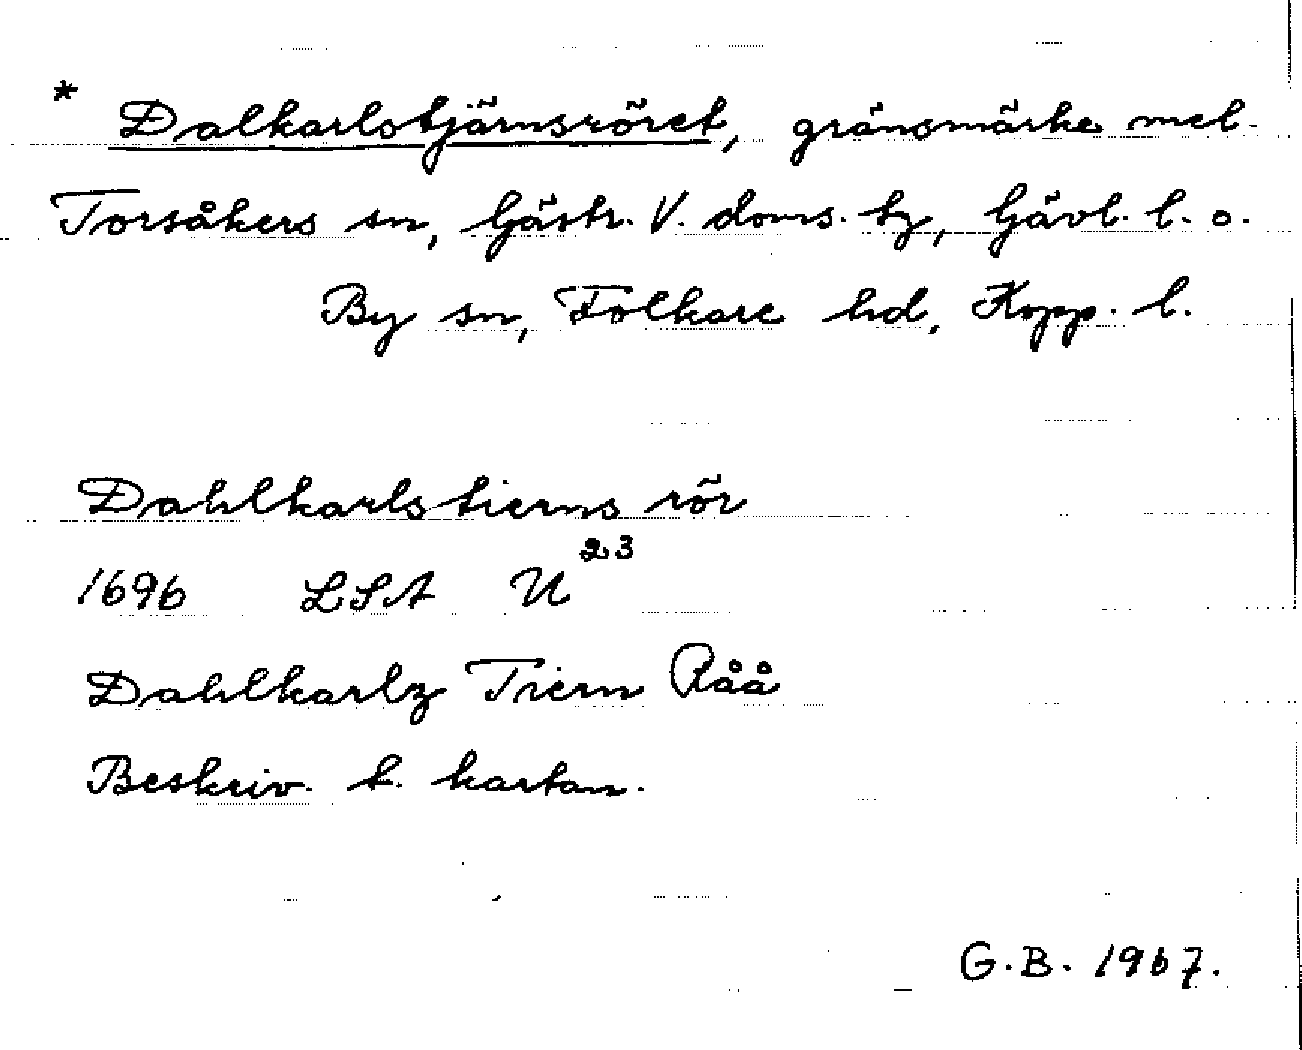 * Dalkarlstjärnsröret, gränsmärke mel.
Torsåkers sn, Gästr. V. doms. tg, Gävl. l. o.
By sn, Folkare hd, Kopp. l.
Dahlkarlstierns rör
1696 LSA U²³
Dahlkarlz Tiern Råå
Beskriv. t. kartan.
G.B. 1967.